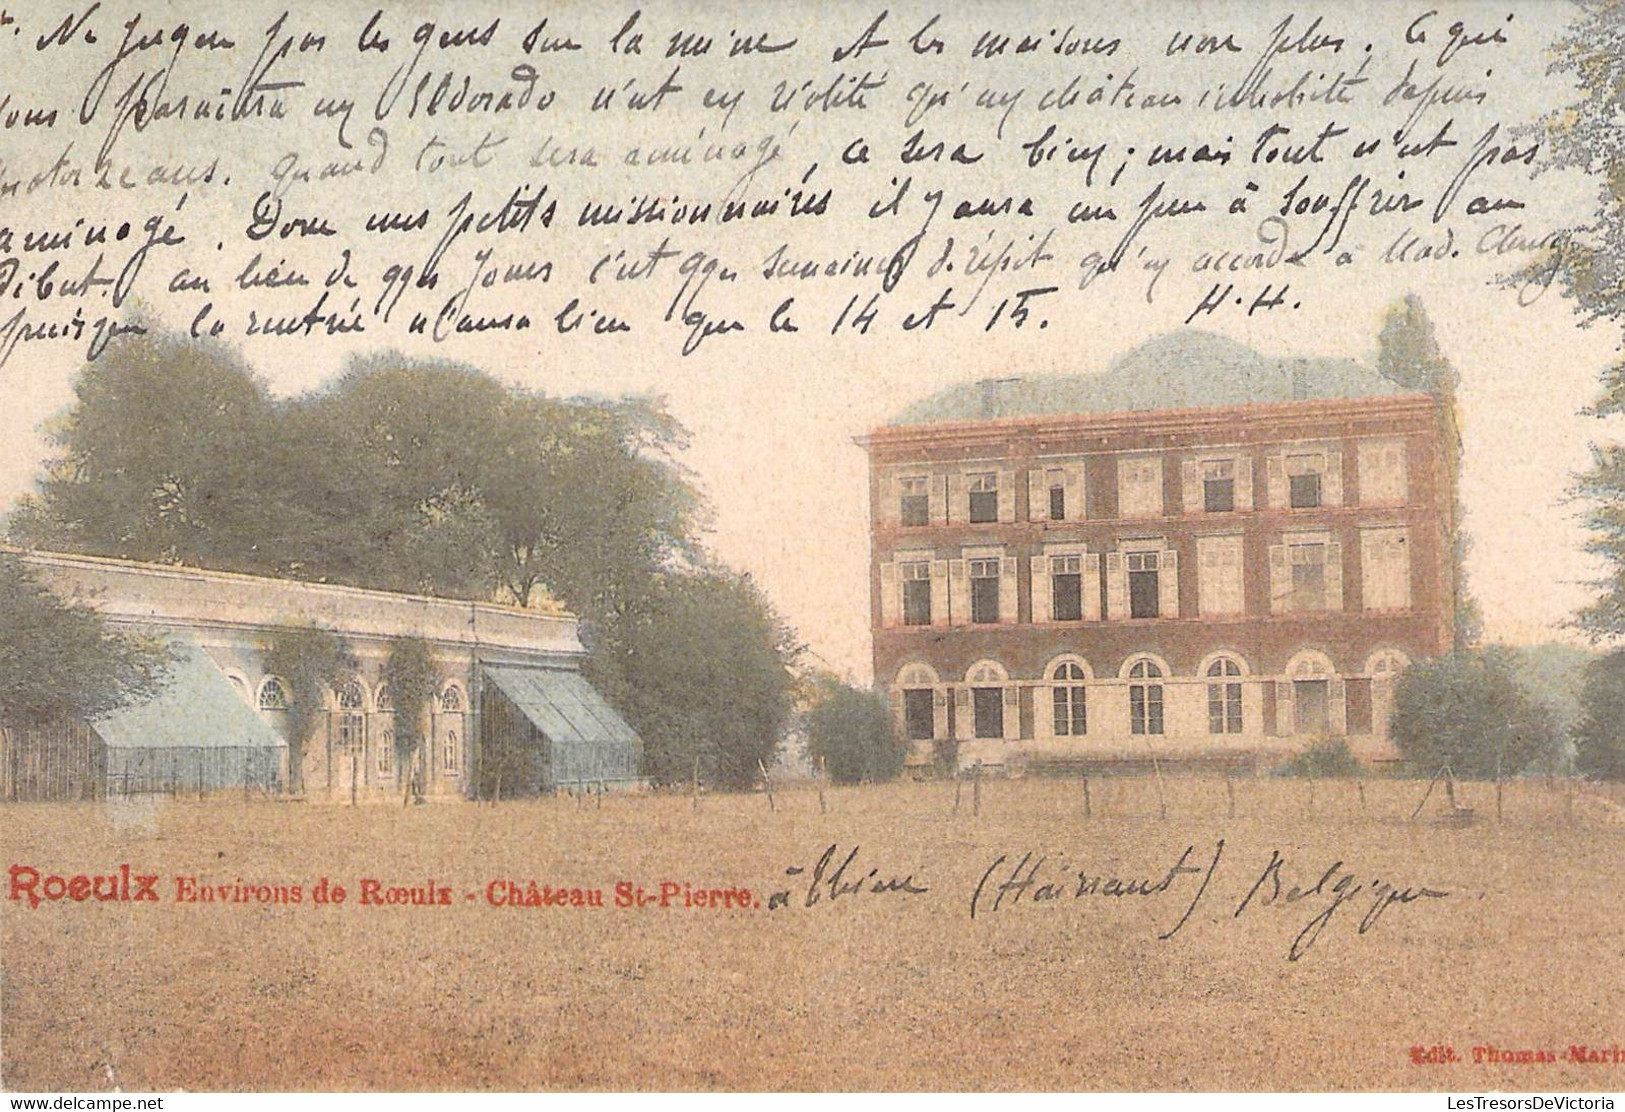 Ne jugez pas les gens sur la mine et les maisons non plus. Ce qui
vous paraîtra un Eldorado n'est en réalité qu'un château inhabité depuis
quatorze ans. Quand tout sera aménagé, ce sera bien ; mais tout n'est pas
aménagé. Donc mes petits missionnaires il y aura un peu à souffrir au
début. au lieu de qqes jours c'est qqes semaines de répit qu'on accorde à Mad.
puisque la rentrée n'aura lieu que le 14 et 15. H.H.
Roeulx Environs de Rœulx - Château St-Pierre. à Thieu (Hainaut) Belgique.
Edit. Thomas-Marin
LesTresorsDeVictoria
www.delcampe.net